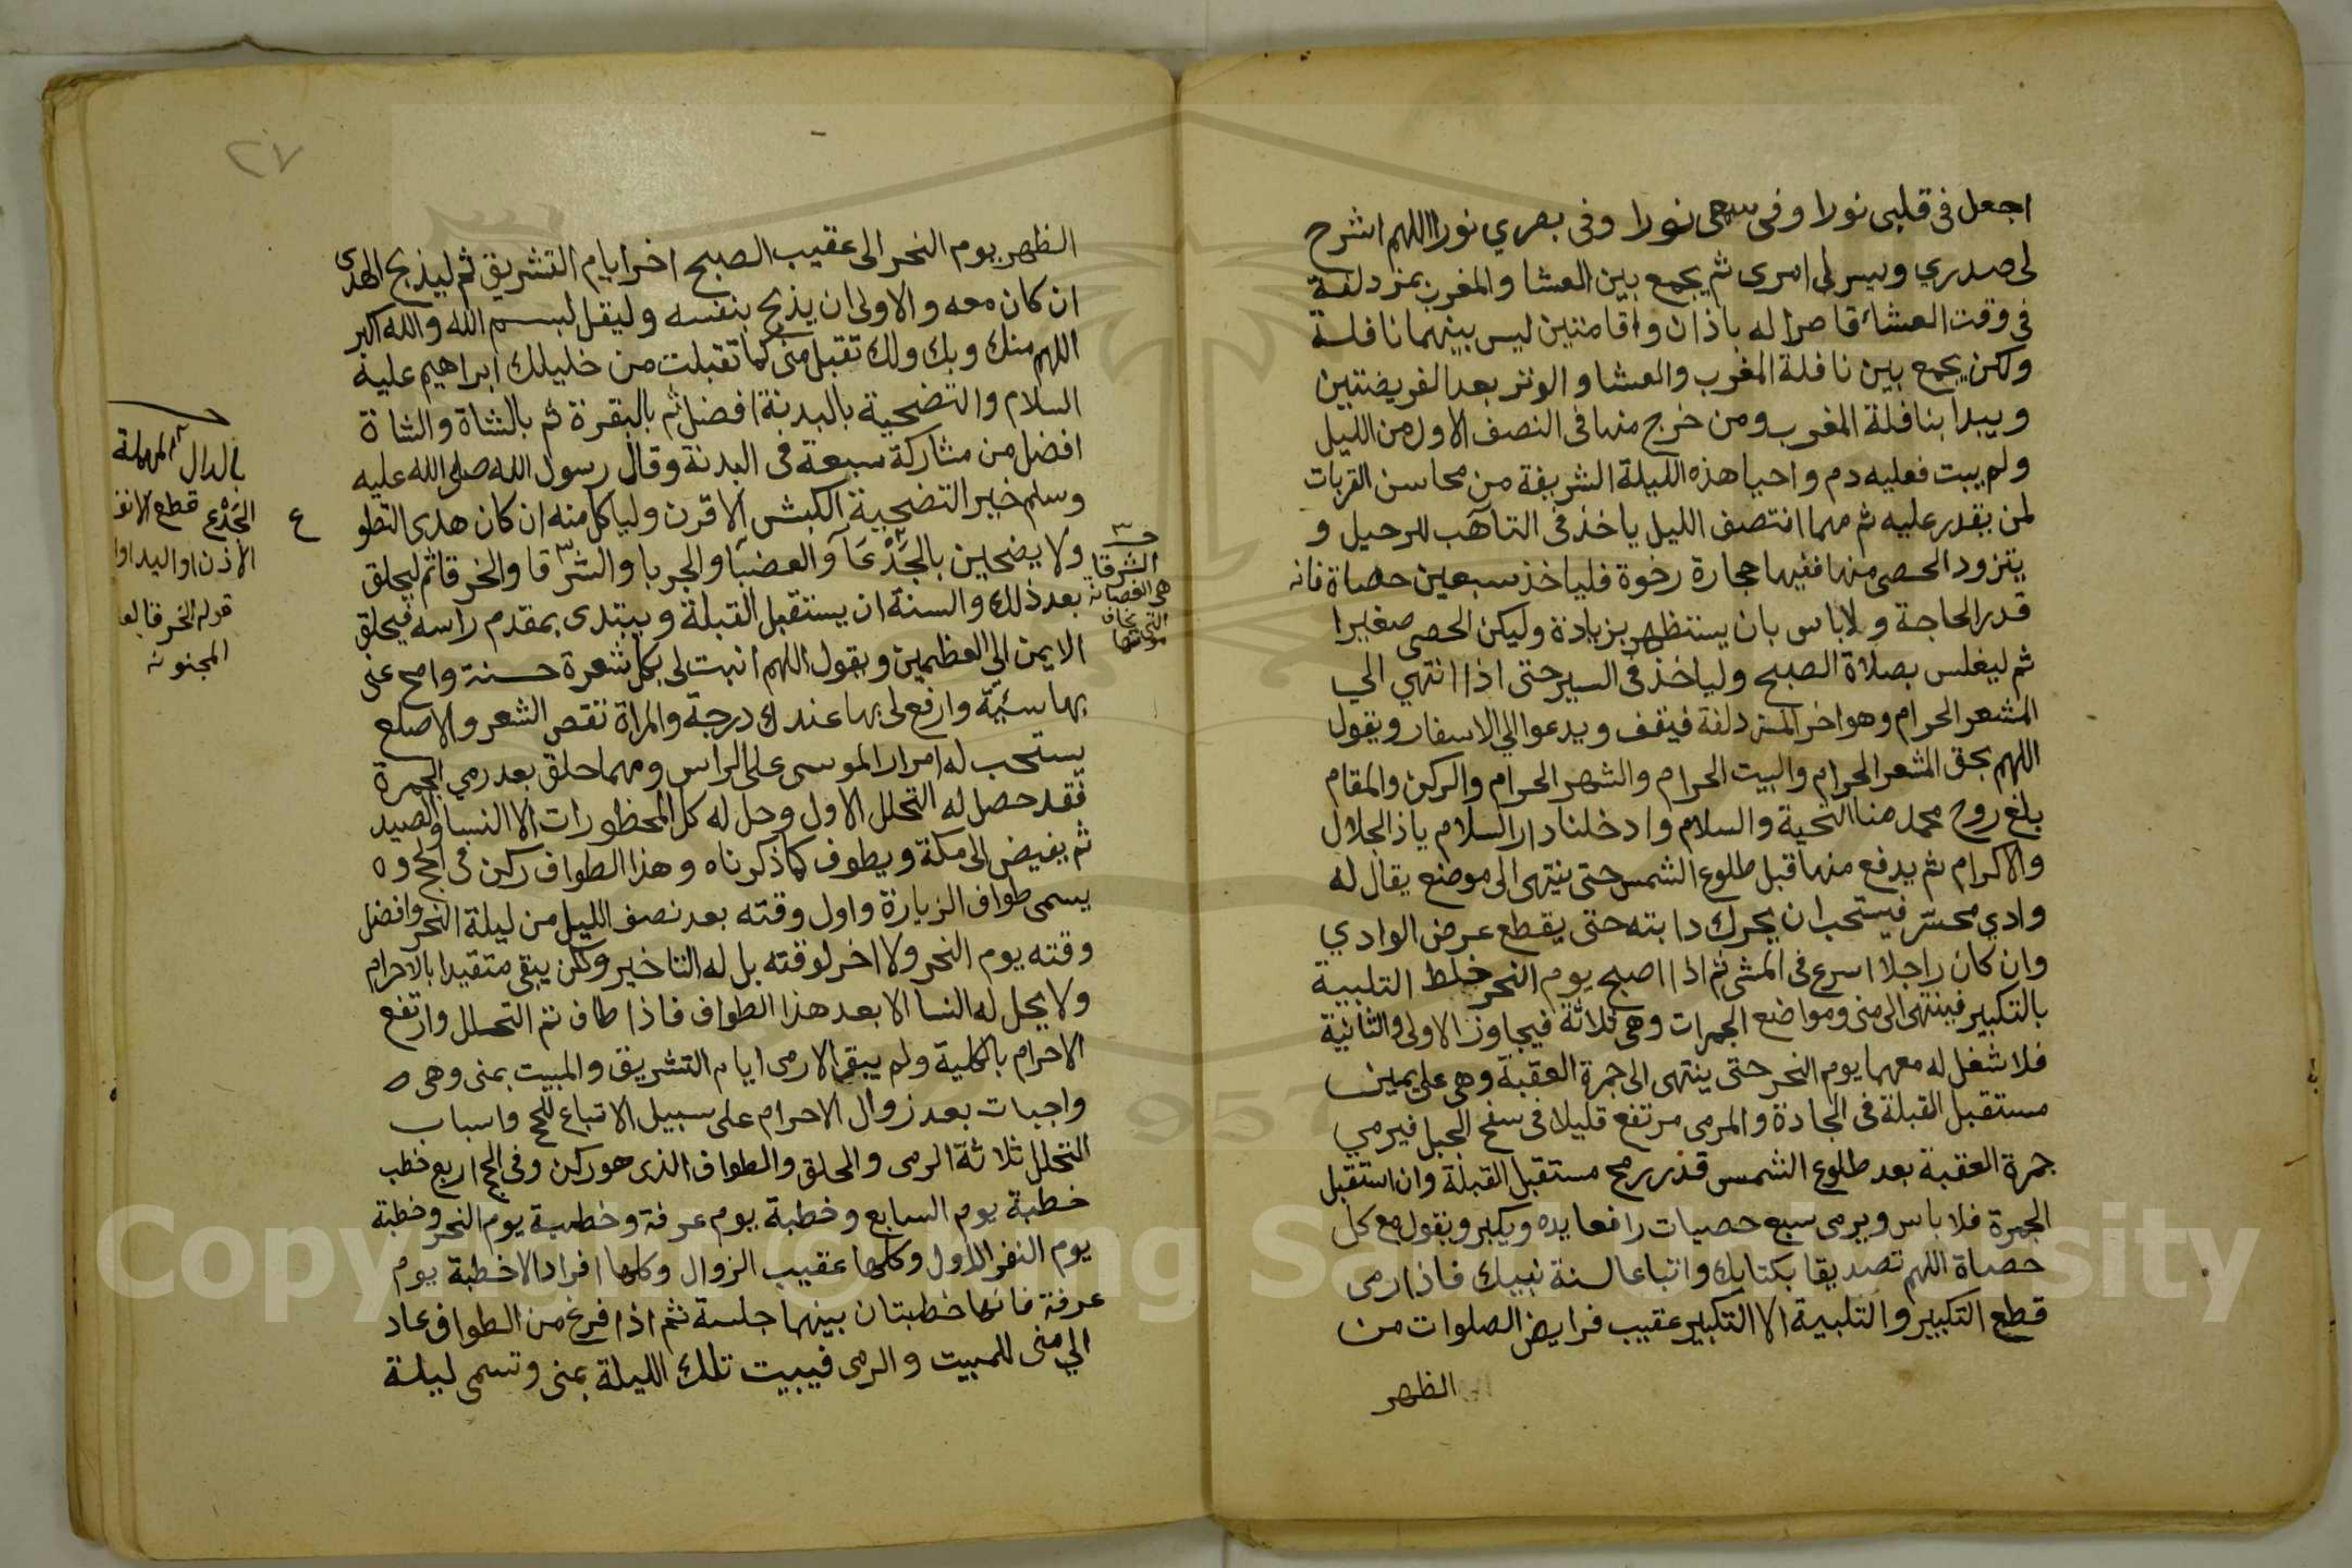 اجعل فى قلبى نورا وفى سمعى نورا وفى بصري نورا اللهم اشرح
لى صدري ويسر لى امرى ثم يجمع بين العشا والمغرب بمزدلفة
فى وقت العشاء قاصرا له باذان واقامتين ليس بينهما نافلة
ولكن يجمع بين نافلة المغرب والعشا والوتر بعد الفريضتين
ويبدا بنافلة المغرب ومن خرج منها فى النصف الاول من الليل
ولم يبت فعليه دم واحيا هذه الليلة الشريفة من محاسن القربات
لمن يقدر عليه ثم مهما انتصف الليل ياخذ فى التاهب للرحيل و
يتزود الحصى منها ففيها حجارة رخوة فلياخذ سبعين حصاة فانه
قدر الحاجة ولا باس بان يستظهر بزيادة وليكن الحصى صغيرا
ثم ليغلس بصلاة الصبح ولياخذ فى السير حتى اذا انتهي الي
المشعر الحرام وهو اخر المزدلفة فيقف ويدعوا الي الاسفار ويقول
اللهم بحق المشعر الحرام والبيت الحرام والشهر الحرام والركن والمقام
بلغ روح محمد منا التحية والسلام وادخلنا دار السلام ياذا الجلال
والاكرام ثم يدفع منها قبل طلوع الشمس حتى ينتهى الى موضع يقال له
وادي محسّر فيستحب ان يحرك دابته حتى يقطع عرض الوادي
وان كان راجلا اسرع فى المشى ثم اذا اصبح يوم النحر خلط التلبية
بالتكبير فينتهى الى منى ومواضع الجمرات وهى ثلاثة فيجاوز الاولى والثانية
فلا شغل له معهما يوم النحر حتى ينتهى الى جمرة العقبة وهى على يمين
مستقبل القبلة فى الجادة والمرمى مرتفع قليلا فى سفح الجبل فيرمي
جمرة العقبة بعد طلوع الشمس قدر رمح مستقبل القبلة وان استقبل
الجمرة فلا باس ويرمى سبع حصيات رافعا يده ويكبر ويقول مع كل
حصاة اللهم تصديقا بكتابك واتباعا لسنة نبيك فاذا رمى
قطع التكبير والتلبية الا التكبير عقيب فرايض الصلوات من
الظهر
٢٧
الظهر يوم النحر الى عقيب الصبح اخر ايام التشريق ثم ليذبح الهدى
ان كان معه والاولى ان يذبح بنفسه وليقل بسم الله والله اكبر
اللهم منك وبك ولك تقبل منى كما تقبلت من خليلك ابراهيم عليه
السلام والتضحية بالبدنة افضل ثم بالبقرة ثم بالشاة والشاة
افضل من مشاركة سبعة فى البدنة وقال رسول الله صلى الله عليه
وسلم خير التضحية الكبش الاقرن ولياكل منه ان كان هدى التطو
ع
ولا يضحين بالجَدْعَا والعضبا والجربا والشرقا والخرقا ثم ليحلق
بعد ذلك والسنة ان يستقبل القبلة ويبتدى بمقدم راسه فيحلق
الايمن الي العظمين ويقول اللهم اثبت لى بكل شعرة حسنة وامح عنى
بها سيّئة وارفع لى بها عندك درجة والمراة تقصر الشعر والاصلع
يستحب له امرار الموسى على الراس ومهما حلق بعد رمي الجمرة
فقد حصل له التحلل الاول وحل له كل المحظورات الا النسا والصيد
ثم يفيض الى مكة ويطوف كما ذكرناه وهذا الطواف ركن فى الحج و
يسمى طواف الزيارة واول وقته بعد نصف الليل من ليلة النحر وافضل
وقته يوم النحر ولا اخر لوقته بل له التاخير ولكن يبقى متقيدا بالاحرام
ولا يحل له النسا الا بعد هذا الطواف فاذا طاف تم التحلل وارتفع
الاحرام بالكلية ولم يبق الا رمى ايام التشريق والمبيت بمنى وهى
واجبات بعد زوال الاحرام على سبيل الاتباع للحج واسباب
التحلل ثلاثة الرمى والحلق والطواف الذى هو ركن وفى الحج اربع خطب
خطبة يوم السابع وخطبة يوم عرفة وخطبة يوم النحر وخطبة
يوم النفر الاول وكلها عقيب الزوال وكلها افراد الا خطبة يوم
عرفة فانها خطبتان بينهما جلسة ثم اذا فرغ من الطواف عاد
الي منى للمبيت والرمى فيبيت تلك الليلة بمنى وتسمى ليلة
الشرقا
هى
التى
بالدال المهملة
الجَدْع قطع الانف
الاذن او اليد او
قوله الخرقا